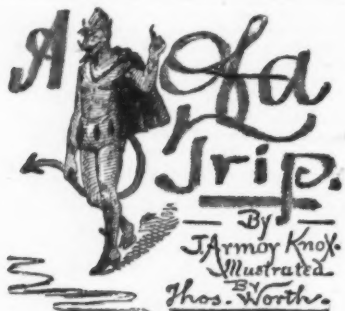 A of a
Trip.
By
J. Armoy Knox.
Illustrated
By
Thos. Worth.